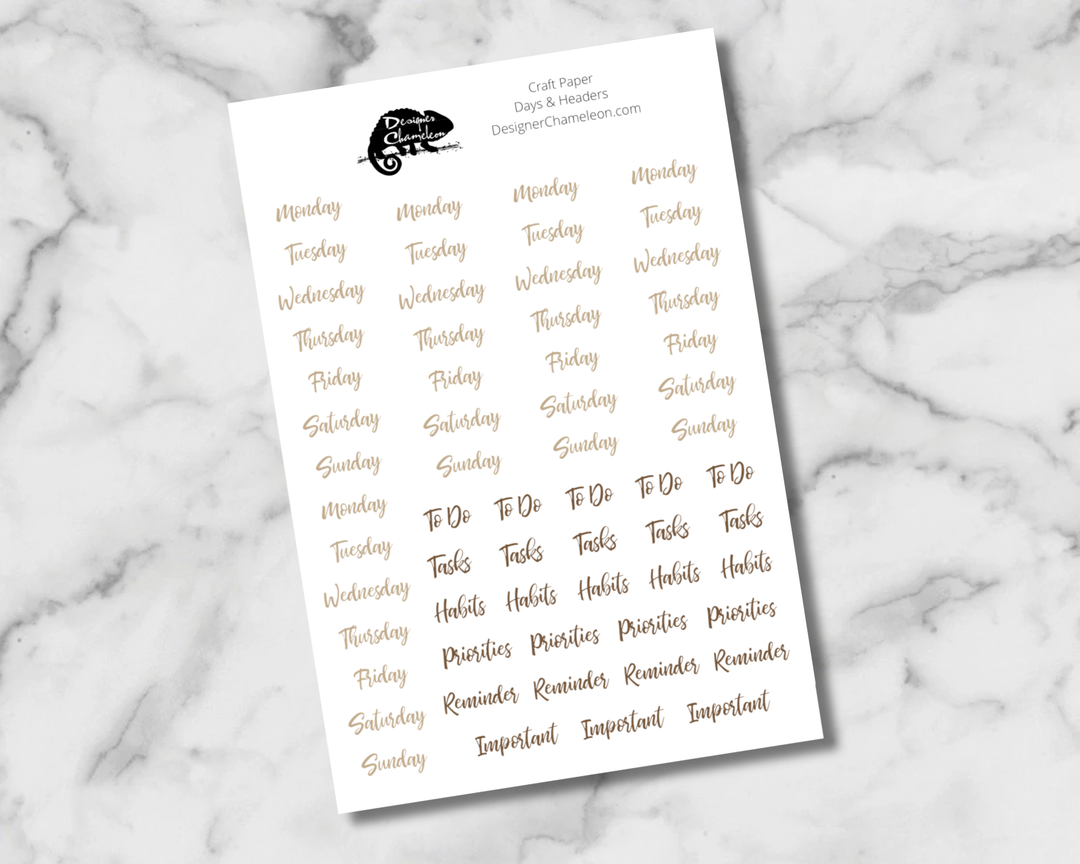 Designer
Chameleon
Craft Paper
Days & Headers
DesignerChameleon.com
Monday Monday Monday Monday
Tuesday Tuesday Tuesday Tuesday
Wednesday Wednesday Wednesday Wednesday
Thursday Thursday Thursday Thursday
Friday Friday Friday Friday
Saturday Saturday Saturday Saturday
Sunday Sunday Sunday Sunday
Monday
Tuesday
Wednesday
Thursday
Friday
Saturday
Sunday
To Do To Do To Do To Do To Do
Tasks Tasks Tasks Tasks Tasks
Habits Habits Habits Habits Habits
Priorities Priorities Priorities Priorities
Reminder Reminder Reminder Reminder
Important Important Important